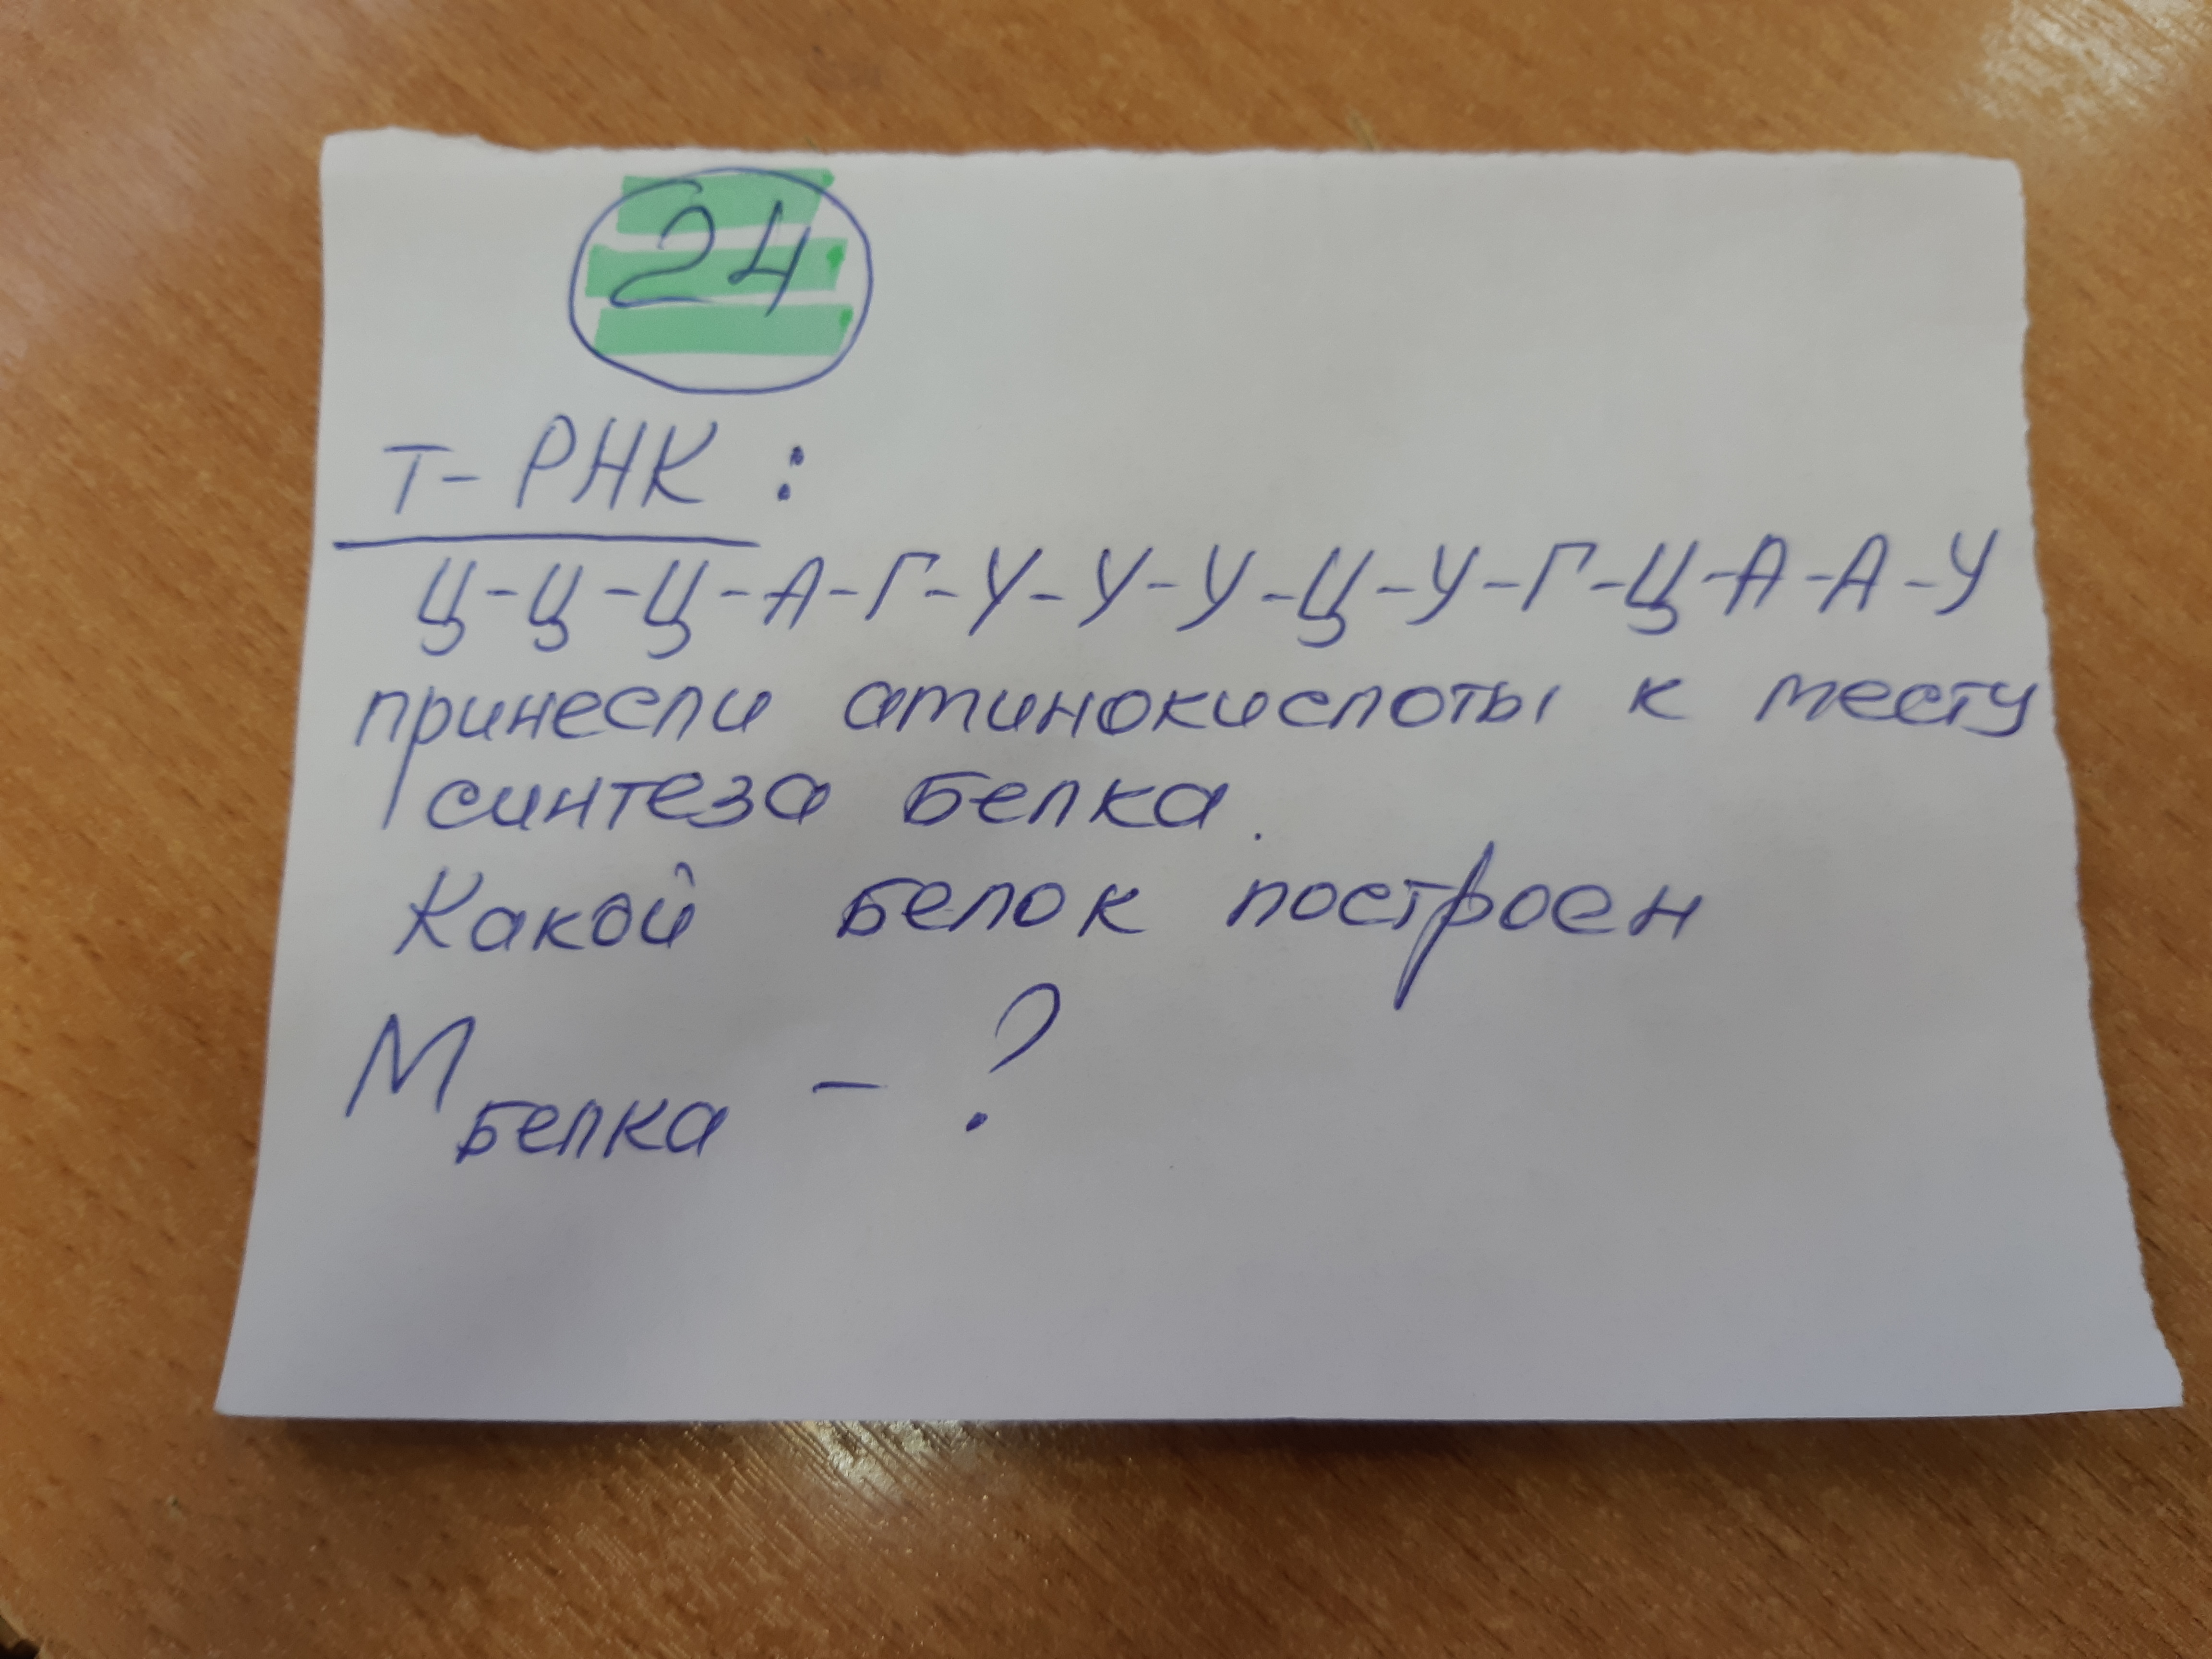 24
Т-РНК:
Ц-Ц-Ц-А-Г-У-У-У-Ц-У-Г-Ц-А-А-У
принесли аминокислоты к месту
синтеза белка.
Какой белок построен
М белка - ?